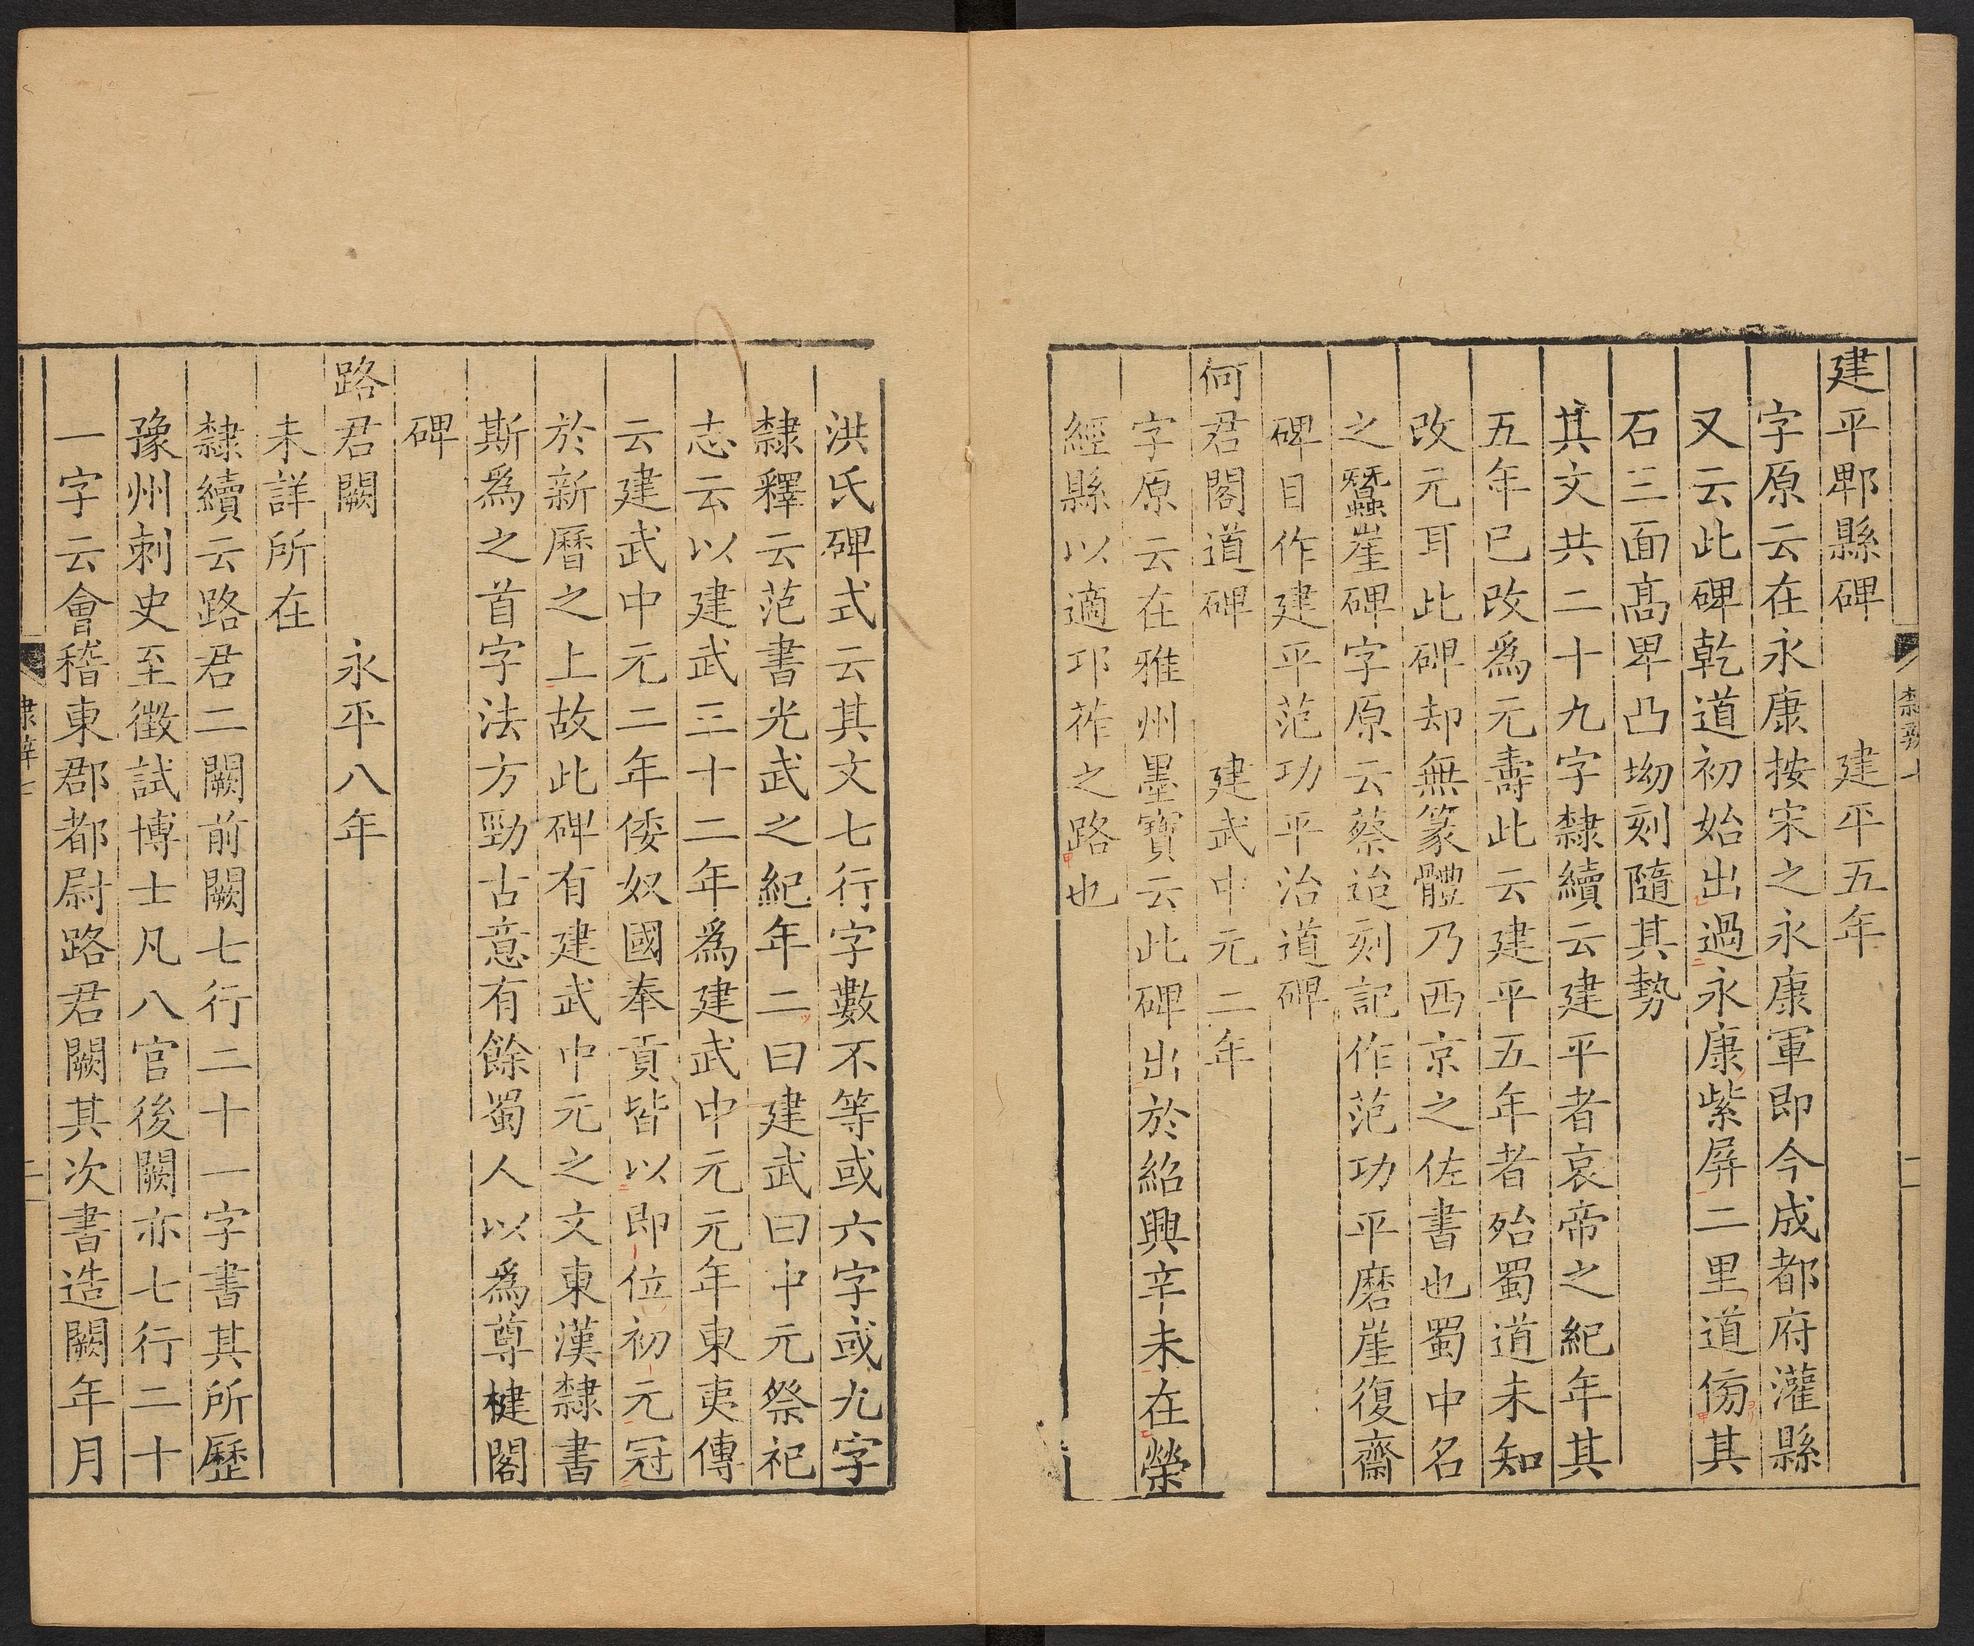 建平郫縣碑　建平五年
字原云在永康按宋之永康軍即今成都府灌縣
又云此碑乾道初始出過永康紫屏二里道傍其
石三面高卑凸坳刻隨其勢
其文共二十九字隸續云建平者哀帝之紀年其
五年已改爲元壽此云建平五年者殆蜀道未知
改元耳此碑却無篆體乃西京之佐書也蜀中名
之蠶崖碑字原云蔡迨刻記作范功平磨崖復齋
碑目作建平范功平治道碑
何君閣道碑　建武中元二年
字原云在雅州墨寶云此碑出於紹興辛未在滎
經縣以適邛莋之路也
洪氏碑式云其文七行字數不等或六字或九字
隸釋云范書光武之紀年二曰建武曰中元祭祀
志云以建武三十二年爲建武中元元年東夷傳
云建武中元二年倭奴國奉貢皆以即位初元冠
於新曆之上故此碑有建武中元之文東漢隸書
斯爲之首字法方勁古意有餘蜀人以爲尊楗閣
碑
路君闕　永平八年
未詳所在
隸續云路君二闕前闕七行二十一字書其所歷
豫州刺史至徵試博士凡八官後闕亦七行二十
一字云會稽東郡都尉路君闕其次書造闕年月